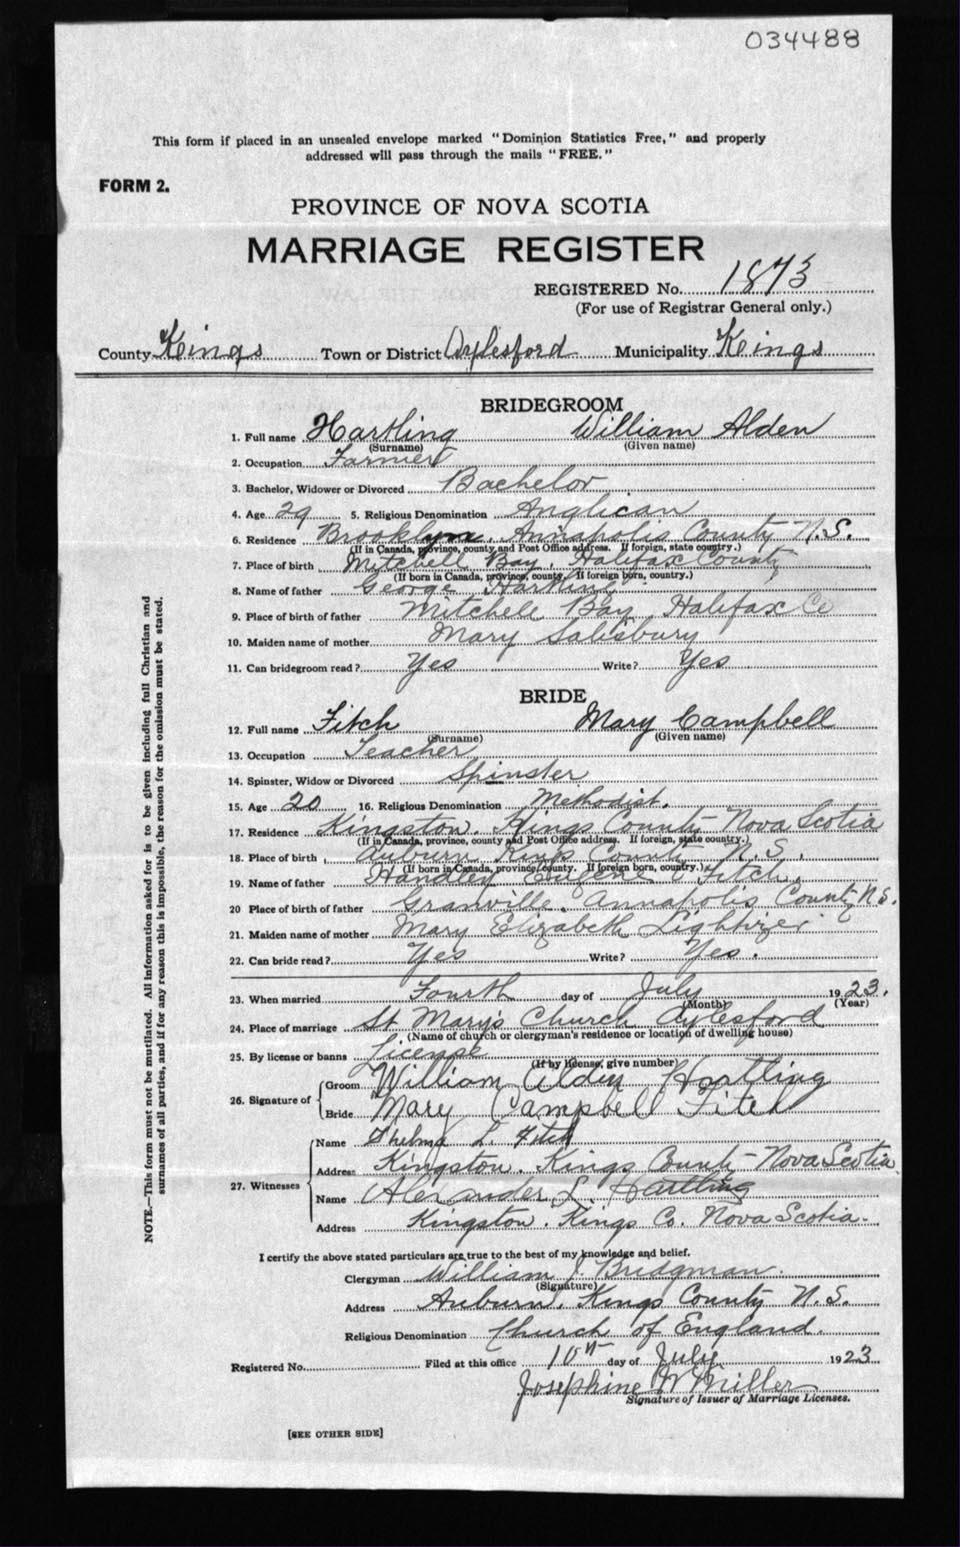 034488
This form if placed in an unsealed envelope marked "Dominion Statistics Free," and properly
addressed will pass through the mails "FREE."
FORM 2.
PROVINCE OF NOVA SCOTIA
MARRIAGE REGISTER
REGISTERED No. 1873
(For use of Registrar General only.)
County Keings Town or District Aylesford Municipality Keings
BRIDEGROOM
1. Full name Hartling William Alden
(Surname) (Given name)
2. Occupation Farmer
3. Bachelor, Widower or Divorced Bachelor
4. Age 29 5. Religious Denomination Anglican
6. Residence Brooklyn. Annapolis County N.S.
(If in Canada, province, county and Post Office address. If foreign, state country.)
7. Place of birth Mitchell Bay, Halifax County
(If born in Canada, province, county. If foreign born, country.)
8. Name of father George Hartling
9. Place of birth of father Mitchell Bay, Halifax Co
10. Maiden name of mother Mary Salisbury
11. Can bridegroom read? Yes Write? Yes
BRIDE
12. Full name Fitch Mary Campbell
(Surname) (Given name)
13. Occupation Teacher
14. Spinster, Widow or Divorced Spinster
15. Age 20 16. Religious Denomination Methodist.
17. Residence Kingston. Kings County Nova Scotia
(If in Canada, province, county and Post Office address. If foreign, state country.)
18. Place of birth Auburn Kings County N.S.
(If born in Canada, province, county. If foreign born, country.)
19. Name of father Handley Eugene Fitch.
20 Place of birth of father Granville. Annapolis County N.S.
21. Maiden name of mother Mary Elizabeth
22. Can bride read? Yes Write? Yes.
23. When married Fourth day of July 1923.
(Month) (Year)
24. Place of marriage St Mary's Church Aylesford
(Name of church or clergyman's residence or location of dwelling house)
25. By license or banns License
(If by license, give number)
26. Signature of Groom William Alden Hartling
Bride Mary Campbell Fitch
27. Witnesses
Name Thelma L. Fitch
Address Kingston. Kings County Nova Scotia
Name Alexander L. Hartling
Address Kingston. Kings Co. Nova Scotia.
I certify the above stated particulars are true to the best of my knowledge and belief.
Clergyman William J. Bridgman.
(Signature)
Address Auburn. Kings County N.S.
Religious Denomination Church of England.
Registered No. Filed at this office 10th day of July 1923
Josephine W Miller
Signature of Issuer of Marriage Licenses.
[SEE OTHER SIDE]
NOTE.—This form must not be mutilated. All information asked for is to be given including full Christian and
surnames of all parties, and if for any reason this is impossible, the reason for the omission must be stated.